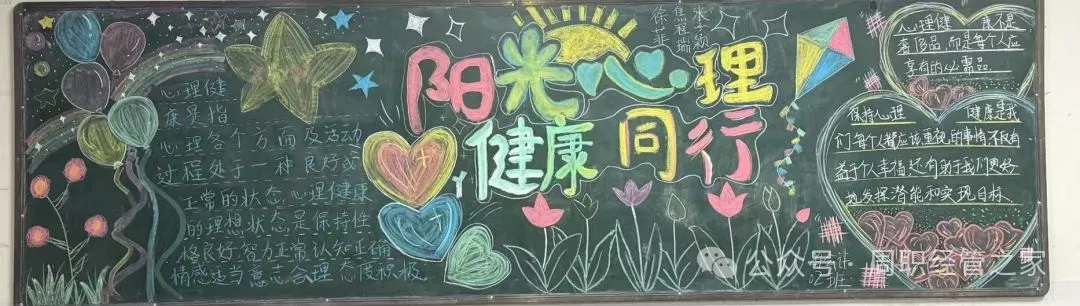 心理健
康是指
心理各个方面及活动
过程处于一种良好或
正常的状态 心理健康
的理想状态是保持性
格良好 智力正常 认知正确
情感适当 意志合理 态度积极
阳光心理
健康同行
心理健 康不是
奢侈品,而是每个人应
享有的必需品。
保持心理 健康是我
们每个人都应该重视的事情,不仅有
益个人幸福,还有助于我们更好
地发挥潜能和实现目标
公众号 周职经管之家